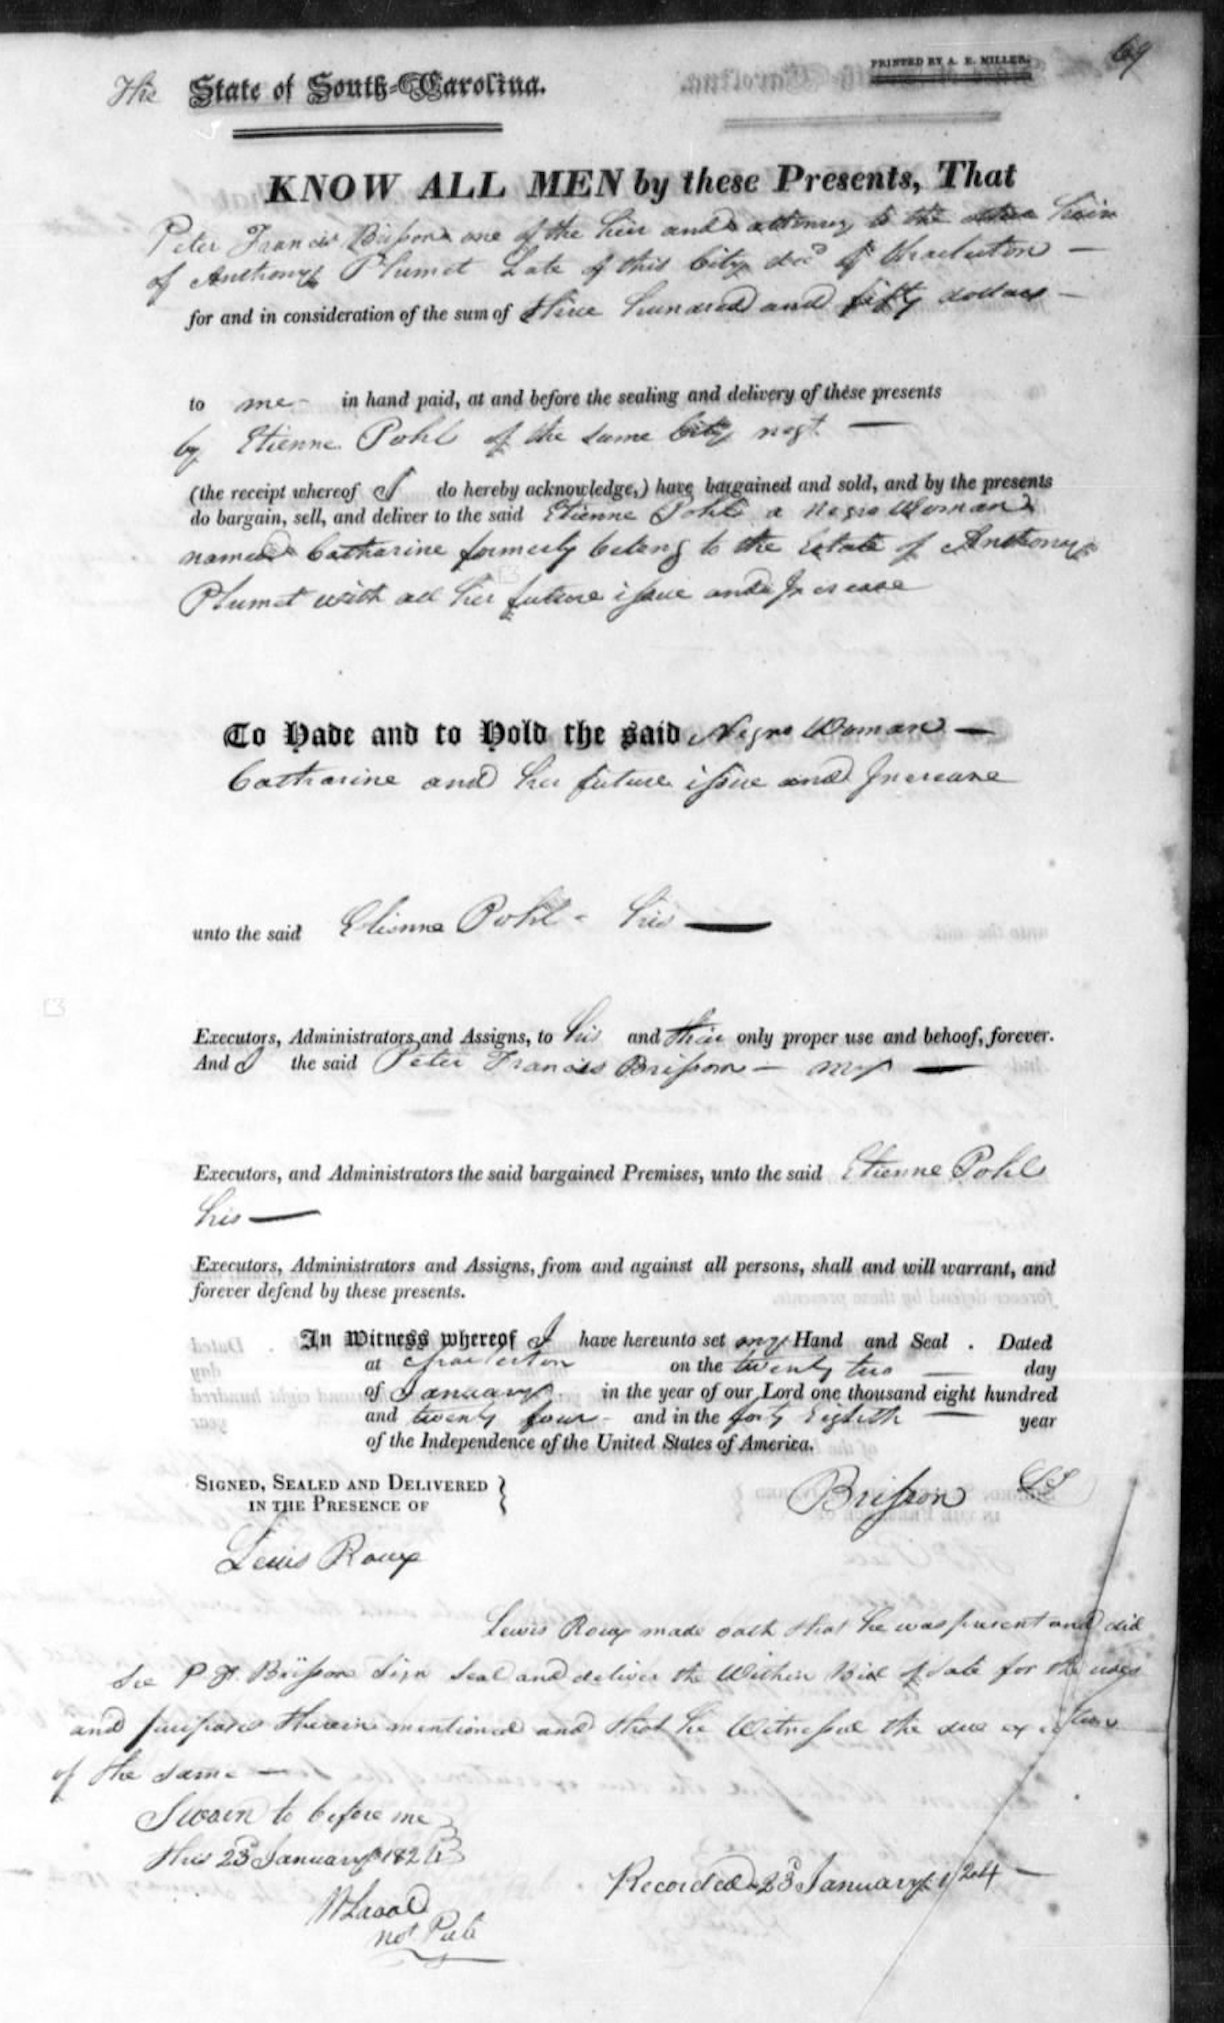 PRINTED BY A. E. MILLER.
69
The State of South-Carolina.
KNOW ALL MEN by these Presents, That
Peter Francis Brisson one of the heir and attorney to the other heirs
of Anthony Plumet Late of this City decd of Charleston —
for and in consideration of the sum of three hundred and fifty dollars —
to me - in hand paid, at and before the sealing and delivery of these presents
by Etienne Pohl of the same City negt. —
(the receipt whereof I do hereby acknowledge,) have bargained and sold, and by the presents
do bargain, sell, and deliver to the said Etienne Pohl a Negro Woman
named Catharine formerly belong to the Estate of Anthony
Plumet with all her future issue and Increase
To Have and to Hold the said Negro Woman —
Catharine and her future issue and Increase
unto the said Etienne Pohl - his —
Executors, Administrators and Assigns, to his and their only proper use and behoof, forever.
And I the said Peter Francis Brisson — my —
Executors, and Administrators the said bargained Premises, unto the said Etienne Pohl
his —
Executors, Administrators and Assigns, from and against all persons, shall and will warrant, and
forever defend by these presents.
In Witness whereof I have hereunto set my Hand and Seal . Dated
at Charleston on the twenty two — day
of January in the year of our Lord one thousand eight hundred
and twenty four - and in the forty Eighth — year
of the Independence of the United States of America.
SIGNED, SEALED AND DELIVERED } Brisson LS
IN THE PRESENCE OF
Lewis Roux
Lewis Roux made oath that he was present and did
See P. F. Brisson Sign Seal and deliver the Within Bill of Sale for the uses
and purposes therein mentioned and that he Witnessed the due execution
of the same —
Sworn to before me
this 23d January 1824
Recorded 23d January 1824 —
Not Pub